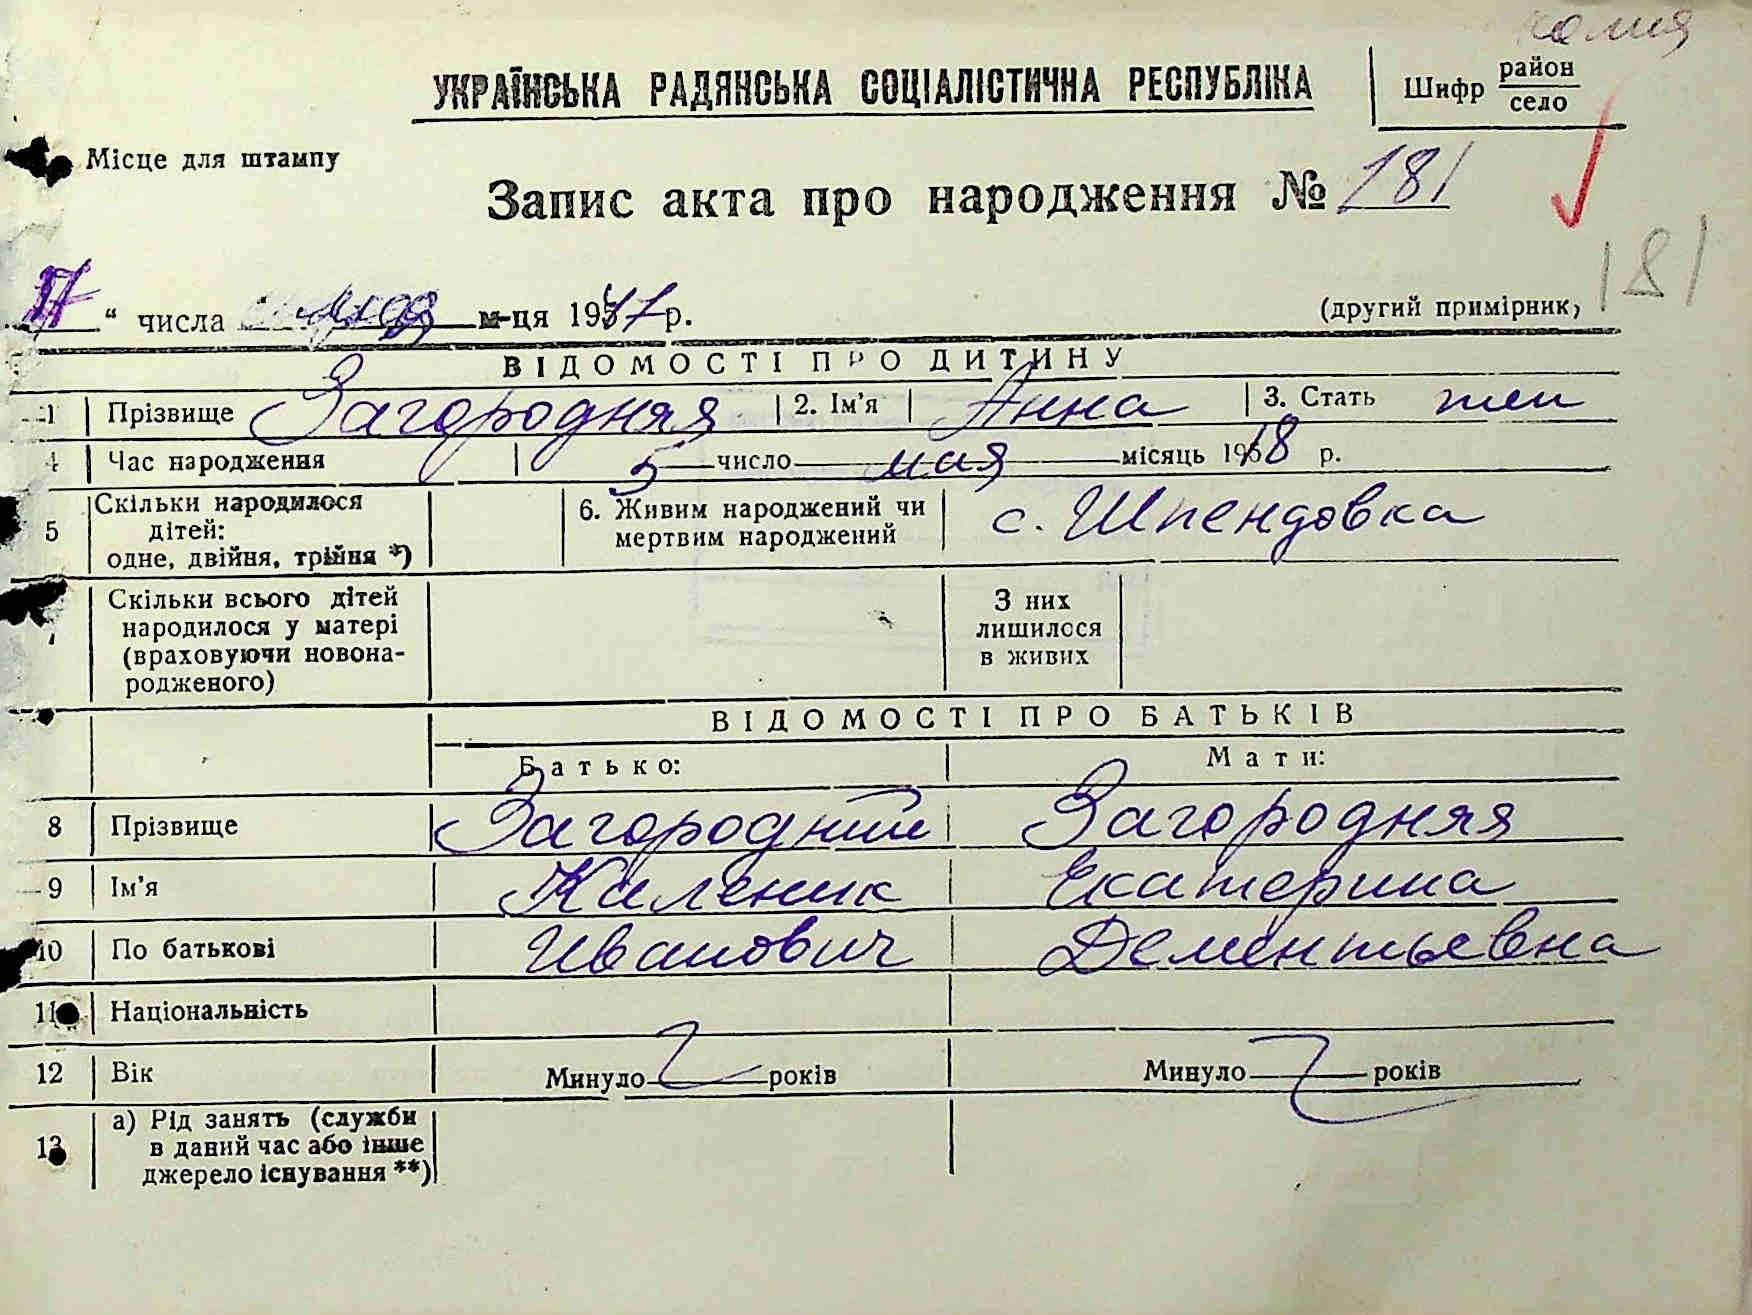 копия
УКРАЇНСЬКА РАДЯНСЬКА СОЦІАЛІСТИЧНА РЕСПУБЛІКА
Шифр район
село
Місце для штампу
Запис акта про народження № 181
181
17 " числа м-ця 1947 р. (другий примірник)
ВІДОМОСТІ ПРО ДИТИНУ
1 Прізвище Загородняя 2. Ім'я Анна 3. Стать жен
4 Час народження 5 число мая місяць 1918 р.
5 Скільки народилося дітей: одне, двійня, трійня *) 6. Живим народжений чи мертвим народжений с. Шпендовка
Скільки всього дітей народилося у матері (враховуючи новонародженого) З них лишилося в живих
ВІДОМОСТІ ПРО БАТЬКІВ
Батько: Мати:
8 Прізвище Загородний Загородняя
9 Ім'я Каленик Екатерина
10 По батькові Иванович Дементьевна
11 Національність
12 Вік Минуло років Минуло років
13 а) Рід занять (служби в даний час або інше джерело існування **)